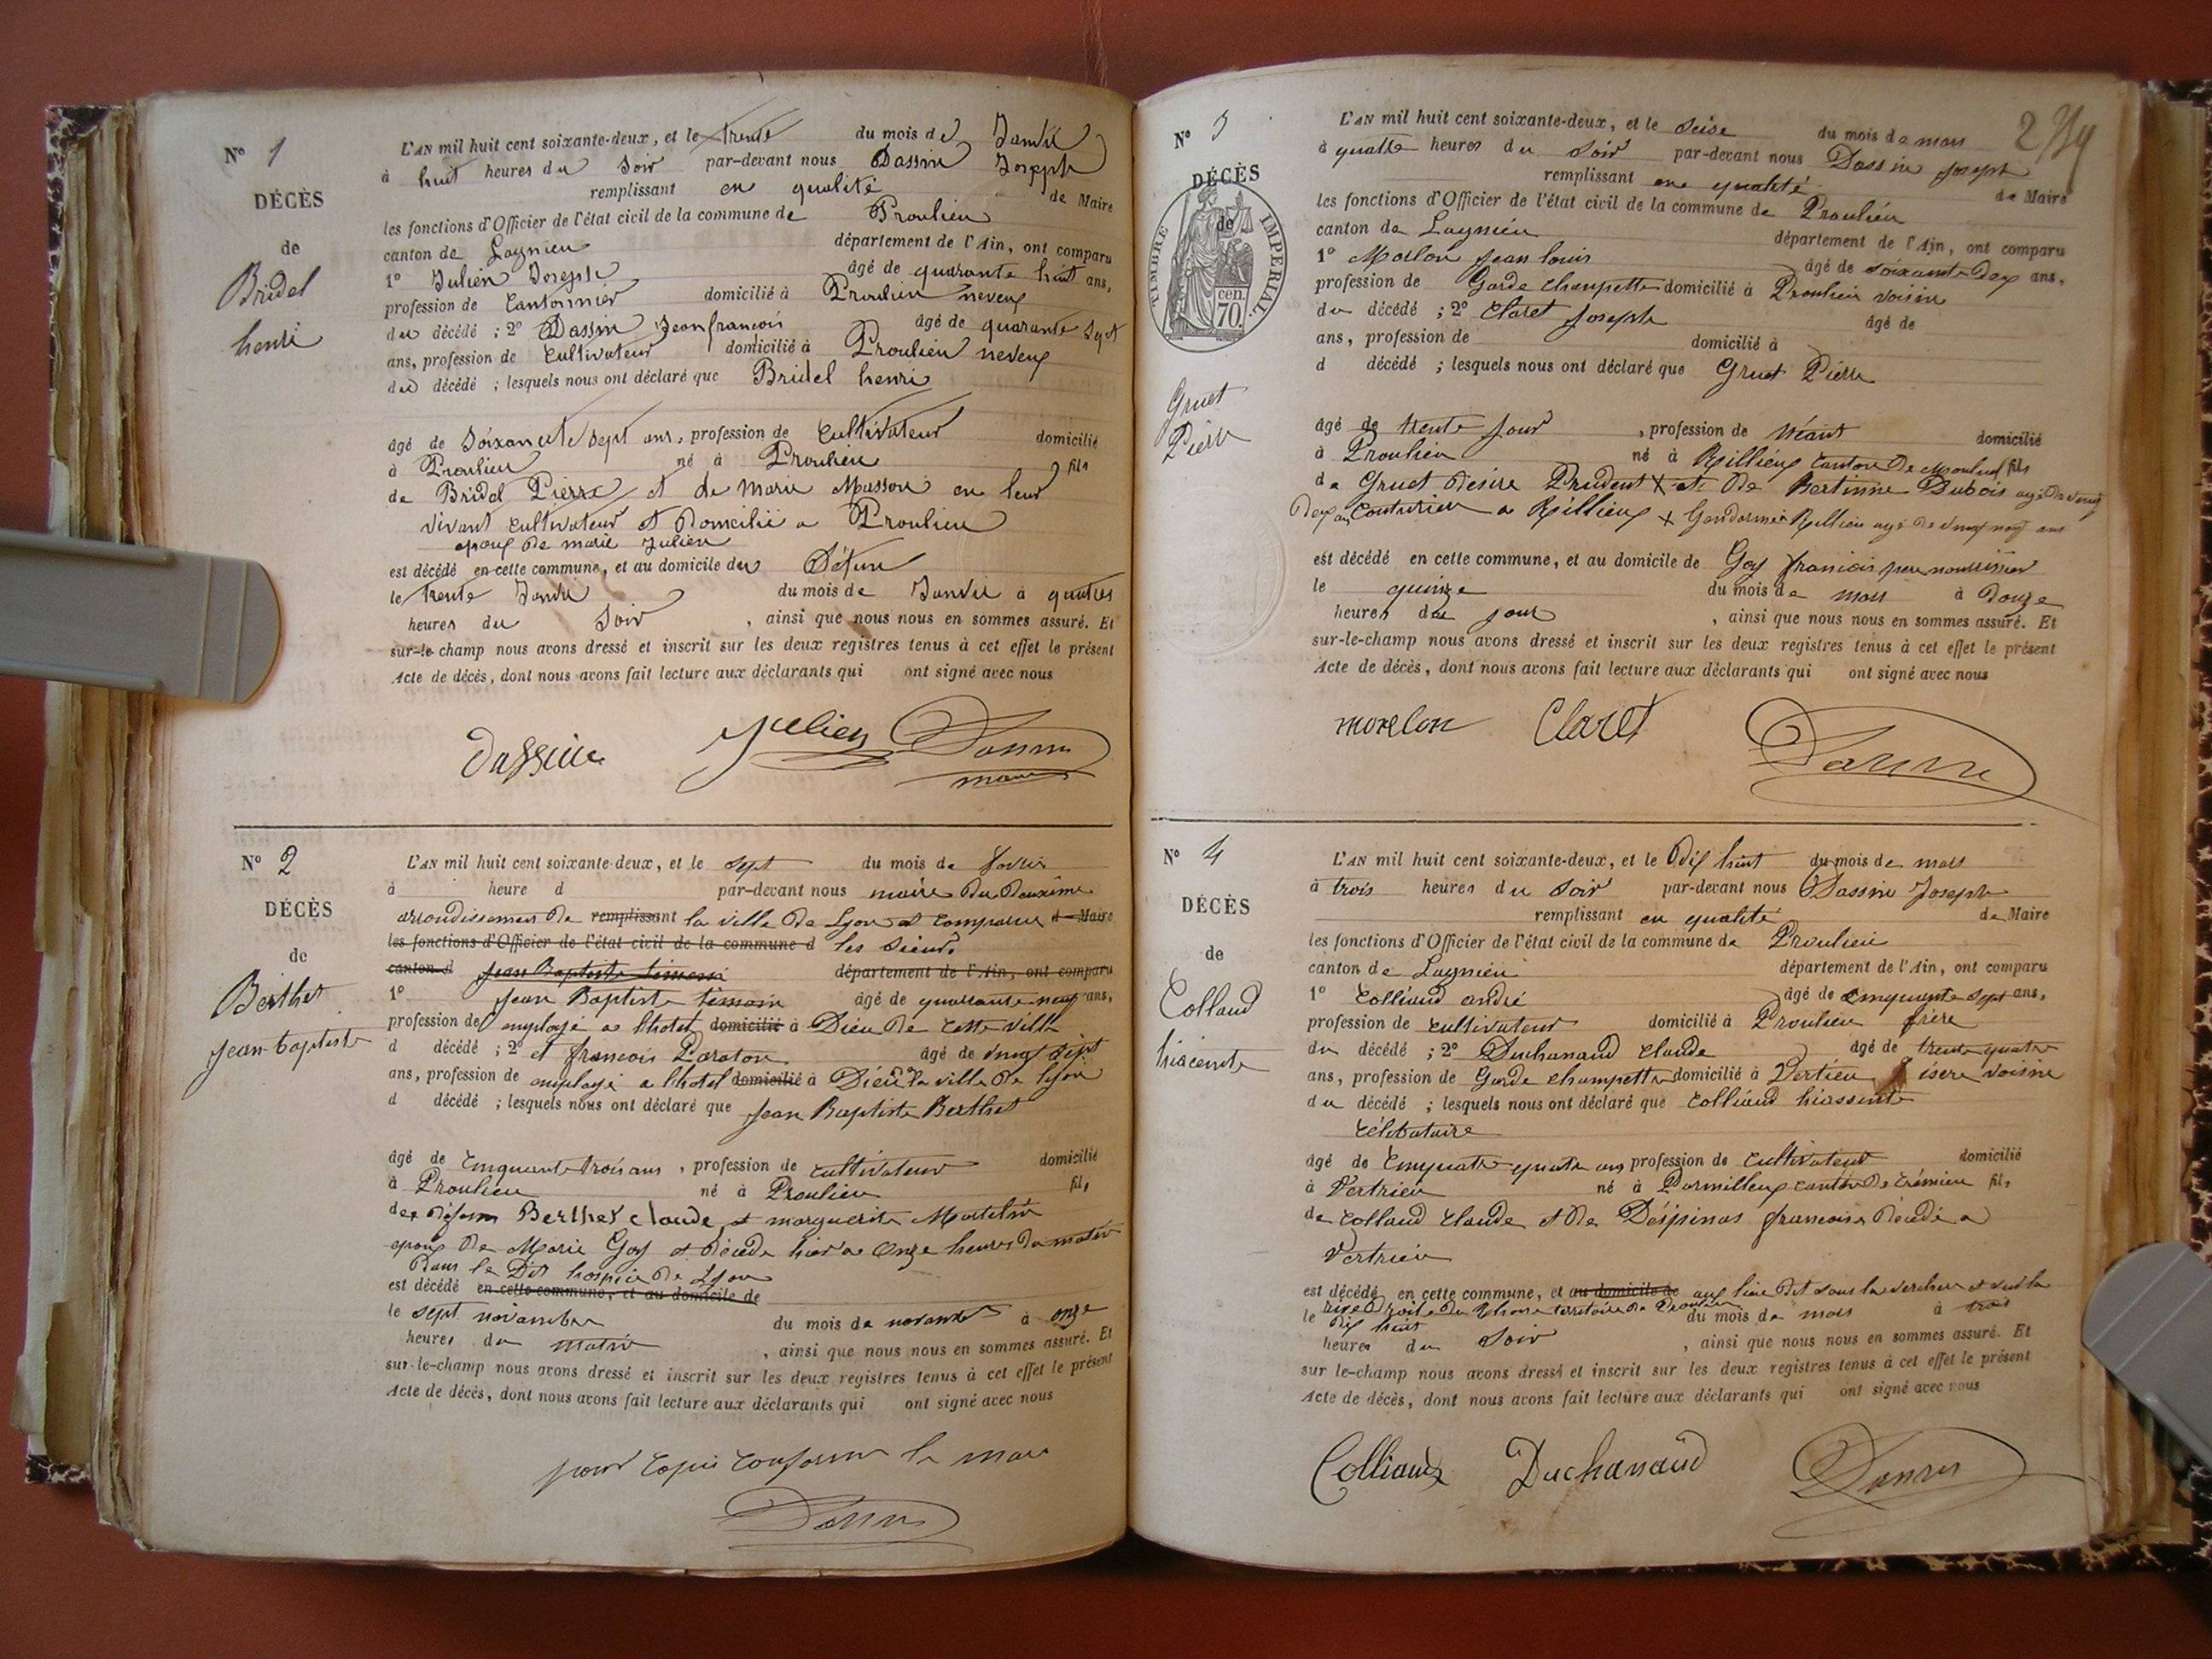 N° 1
DÉCÈS
de
Bridel
henri
L'AN mil huit cent soixante-deux, et le trente du mois de Janvié
à huit heures du Soir par-devant nous Dassin Joseph
remplissant en qualité de Maire
les fonctions d'Officier de l'état civil de la commune de Proulieu
canton de Lagnieu département de l'Ain, ont comparu
1° Julien Joseph âgé de quarante huit ans,
profession de Cantonnier domicilié à Proulieu neveux
du décédé ; 2° Dassin Jean françois âgé de quarante Sept
ans, profession de Cultivateur domicilié à Proulieu neveux
du décédé ; lesquels nous ont déclaré que Bridel henri
âgé de Soixante Sept ans, profession de Cultivateur domicilié
à Proulieu né à Proulieu fils
de Bridel Pierre et de Marie Masson en leur
vivant cultivateur et Domicilié a Proulieu
epoux de marie Julien
est décédé en cette commune, et au domicile du Défun
le trente Janvié du mois de Janvié à quatres
heures du Soir , ainsi que nous nous en sommes assuré. Et
sur-le-champ nous avons dressé et inscrit sur les deux registres tenus à cet effet le présent
Acte de décès, dont nous avons fait lecture aux déclarants qui ont signé avec nous
Dassin Julien Dassin
maire
N° 2
DÉCÈS
de
Berthet
jean-baptiste
L'AN mil huit cent soixante-deux, et le sept du mois de
à heure d par-devant nous maire Du Deuxième
arrondissement De remplissant la ville De Lyon et comparu d Maire
les fonctions d'Officier de l'état civil de la commune d les Sieurs
canton d Jean Baptiste département de l'Ain, ont comparu
1° Jean Baptiste témoin âgé de quarante neuf ans,
profession de employé a lhotel domicilié à Dieu De Cette ville
d décédé ; 2° et françois Paraton âgé de vingt Sept
ans, profession de employé a lhotel domicilié à Dieu De la ville De lyon
d décédé ; lesquels nous ont déclaré que Jean Baptiste Berthet
âgé de Cinquante trois ans , profession de cultivateur domicilié
à Proulieu né à Proulieu fils
des Défun Berthet claude et marguerite
epoux De Marie Goy et Décédé hier a Onze heures Du matin
Dans le Dit hospice De Lyon
est décédé en cette commune, et au domicile de
le sept novembre du mois de novembre à onze
heures du matin , ainsi que nous nous en sommes assuré. Et
sur-le-champ nous avons dressé et inscrit sur les deux registres tenus à cet effet le présent
Acte de décès, dont nous avons fait lecture aux déclarants qui ont signé avec nous
pour Copie conforme le maire
Dassin
N° 3
DÉCÈS
de
TIMBRE IMPERIAL
cen.
70.
Gruet
Pierre
L'AN mil huit cent soixante-deux, et le Seise du mois de mars
à quatre heures du Soir par-devant nous Dassin Joseph
remplissant en qualité de Maire
les fonctions d'Officier de l'état civil de la commune de Proulieu
canton de Lagnieu département de l'Ain, ont comparu
1° Morlon Jean louis âgé de soixante Deux ans,
profession de Garde champette domicilié à Proulieu voisin
du décédé ; 2° Claret Joseph âgé de
ans, profession de domicilié à
d décédé ; lesquels nous ont déclaré que Gruet Pierre
âgé de trente jour , profession de Néant domicilié
à Proulieu né à Rillieux canton De Monluel fils
de Gruet Désiré Prudent X et De Dubois agé De vingt
Deux ans Couturier a Rillieux X Gendarme Rillieu agé de vingt neuf ans
est décédé en cette commune, et au domicile de Goy françois pere nourrissier
le quinze du mois de mars à Douze
heures du jour , ainsi que nous nous en sommes assuré. Et
sur-le-champ nous avons dressé et inscrit sur les deux registres tenus à cet effet le présent
Acte de décès, dont nous avons fait lecture aux déclarants qui ont signé avec nous
morelon Claret Dassin
N° 4
DÉCÈS
de
Colland
hiacente
L'AN mil huit cent soixante-deux, et le Dix huit du mois de mars
à trois heures du Soir par-devant nous Dassin Joseph
remplissant en qualité de Maire
les fonctions d'Officier de l'état civil de la commune de Proulieu
canton de Lagnieu département de l'Ain, ont comparu
1° Colliaud andré âgé de Cinquante Sept ans,
profession de cultivateur domicilié à Proulieu frère
du décédé ; 2° Duchanaud Claude âgé de trente quatre
ans, profession de Garde champette domicilié à Vertrieu isere voisin
du décédé ; lesquels nous ont déclaré que Colliaud hiassente
Célibataire
âgé de Cinquate quatre ans profession de Cultivateur domicilié
à Vertrieu né à Parmilleux canton De Crémieu fils
de Colland Claude et De Déspinas françoise Décédé a
Vertrieu
est décédé en cette commune, et au domicile de aux lieu Dit sous la et sur la
rive Droite Du Rhone territoire De Proulieu
le Dix huit du mois de mars à trois
heures du Soir , ainsi que nous nous en sommes assuré. Et
sur le-champ nous avons dressé et inscrit sur les deux registres tenus à cet effet le présent
Acte de décès, dont nous avons fait lecture aux déclarants qui ont signé avec nous
Colliaud Duchanaud Dassin